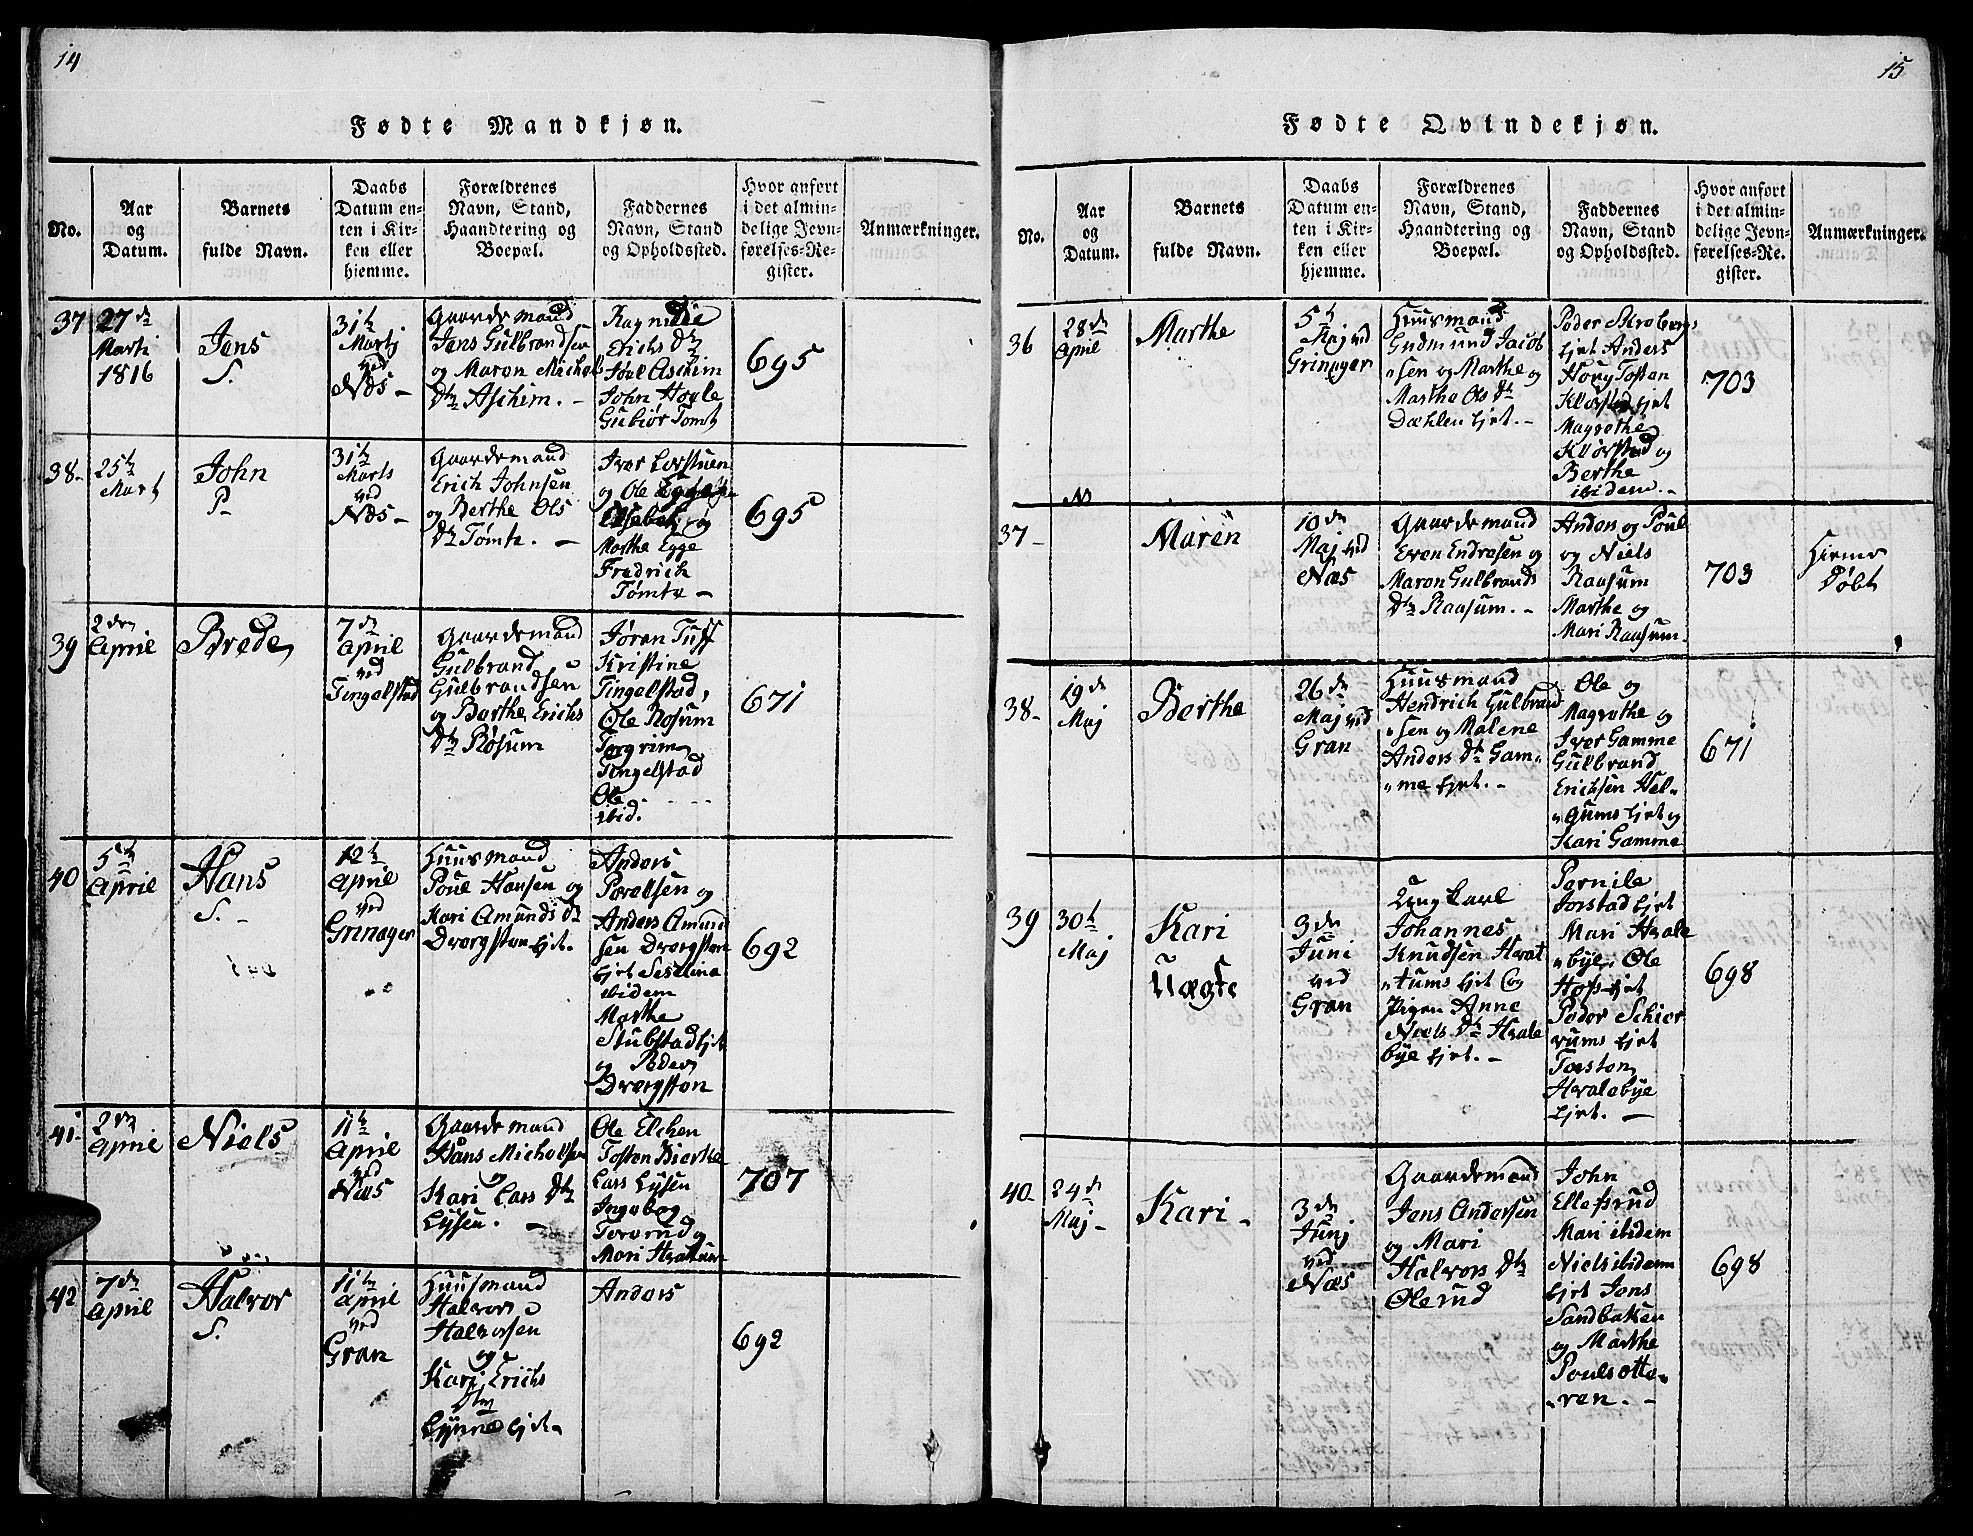 14
Fødte Mandkjøn.
No.
Aar
og
Datum.
Barnets
fulde Navn.
Daabs
Datum en-
ten i Kir-
ken eller
hjemme.
Forældrenes
Navn, Stand,
Haandtering og
Boepæl.
Faddernes
Navn, Stand
og Opholdssted.
Hvor anført
i det almin-
delige Jevn-
førelses-Re-
gister.
Anmærkninger.
37
27 de
Marti
1816
Jens
S.
31 te
Martj
ved
Næs -
Gaardemand
Jens Gulbrandsen
og Maren Michels
Dtr Aschim. -
Ragnilde
Erichs Dtr
Joel Aschim
John Hogle
Gubiør Tomt
695
38-
25 te
Mart
John
P-
31 te
Marts
ved
Næs -
Gaardemand
Erich Johnsen
og Berthe Ols
Dtr Tømte. -
Iver Lorstuen
og Ole
og
Marthe Egge
Fredrich
Tømte -
695
39
2 den
April
Brede
7 de
April
ved
Tingelstad
Gaardemand
Gulbrand
Gulbrandsen
og Berthe Erichs
Dtr Røsum
Jøran Tuff
Kristine
Tingelstad,
Ole Rosum
Torgrim
Tingelstad
Ole
ibid.
671
40
5 te
April
Hans
S. -
12 te
April
ved
Grinager
Huusmand
Poul Hansen og
Kari Amunds Dtr
Dvergsten Ejet.
Anders
Povelsen og
Anders Amund
sen Dvergsten
Ejet Seselina
ibidem
Marthe
Stubstad Ejet
og Peder
Dvergsten
692
41-
2 den
April
Niels
11 te
April
ved
Næs
Gaardemand
Hans Michelsen
og
Kari Lars Dtr
Lysen. -
Ole Elchen
Tosten Bierke
Lars Lysen
Ingebog
Torvrud og
Mari
707
42
7 de
April
Halvor
S.
11 te
April
ved
Gran
Huusmand
Halvor
Halvorsen
og
Kari Erichs
Dtr
Lynne Ejet-
Anders
692
15
Fødte Qvindekjøn.
No.
Aar
og
Datum.
Barnets
fulde Navn.
Daabs
Datum en-
ten i Kir-
ken eller
hjemme.
Forældrenes
Navn, Stand,
Haandtering og
Boepæl.
Faddernes
Navn, Stand
og Opholdssted.
Hvor anført
i det almin-
delige Jevn-
førelses-Re-
gister.
Anmærkninger.
36
28 de
April
Marthe
5 te
Maj ved
Grinager
Huusmand
Gudmund Jacob
"sen og Marthe og
Marthe Ols Dtr
Dæhlen Ejet. -
Peder
Ejet Anders
Houg Tosten
Klorstad Ejet
Magrethe
Klorstad og
Berthe
ibidem. -
703
37-
Maren
10 de
Maj ved
Næs
Gaardemand
Even Endresen og
Maren Gulbrands
Dtr Raasum. -
Anders og Poul
og Niels
Raasum
Marthe og
Mari Raasum.
703
Hieme
Døbt
38-
19 de
Maj
Berthe
26 de
Maj ved
Gran
Huusmand
Hendrich Gulbrand
"sen og Malene
Anders Dtr Gam-
"me Ejet. -
Ole og
Magrethe og
Iver Gamme
Gulbrand
Erichsen Hel-
"gums Ejet og
Kari Gamme
671
39
30 te
Maj
Kari
Uægte
3 de
Juni
ved
Gran
Ung Karl
Johannes
Knudsen Hvat
"tums Ejet og
Pigen Anne
Niels Dtr Hvale
bye Ejet. -
Pernile
Jorstad Ejet
Mari Hvale
"bye Ole
Hofs Ejet
Peder Schier
rums Ejet
Torsten
Hvalebye
Ejet. -
698
40-
24 de
Maj-
Kari-
3 de
Junj
ved
Næs
Gaardemand
Jens Andersen
og Mari
Halvors Dtr
Olerud
John
Ellefsrud
Mari ibidem
Niels ibidem
Ejet Jens
Sandbakken
og Marthe
Poulsotte-
"ren. -
698